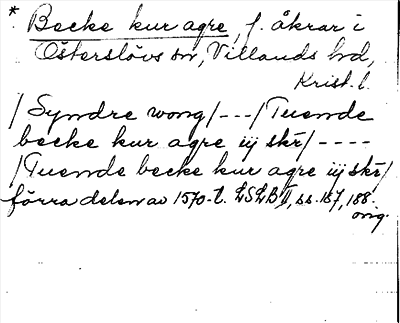 * Becke kur agre, f. åkrar i
Österslövs sn, Villands hd,
Krist. l.
/ Syndre wong / --- / Tuende
becke kur agre iij skr / ----
/ Tuende becke kur agre iij skr /
förra delen av 1570-t. LSLB II, ss. 187, 188.
orig.